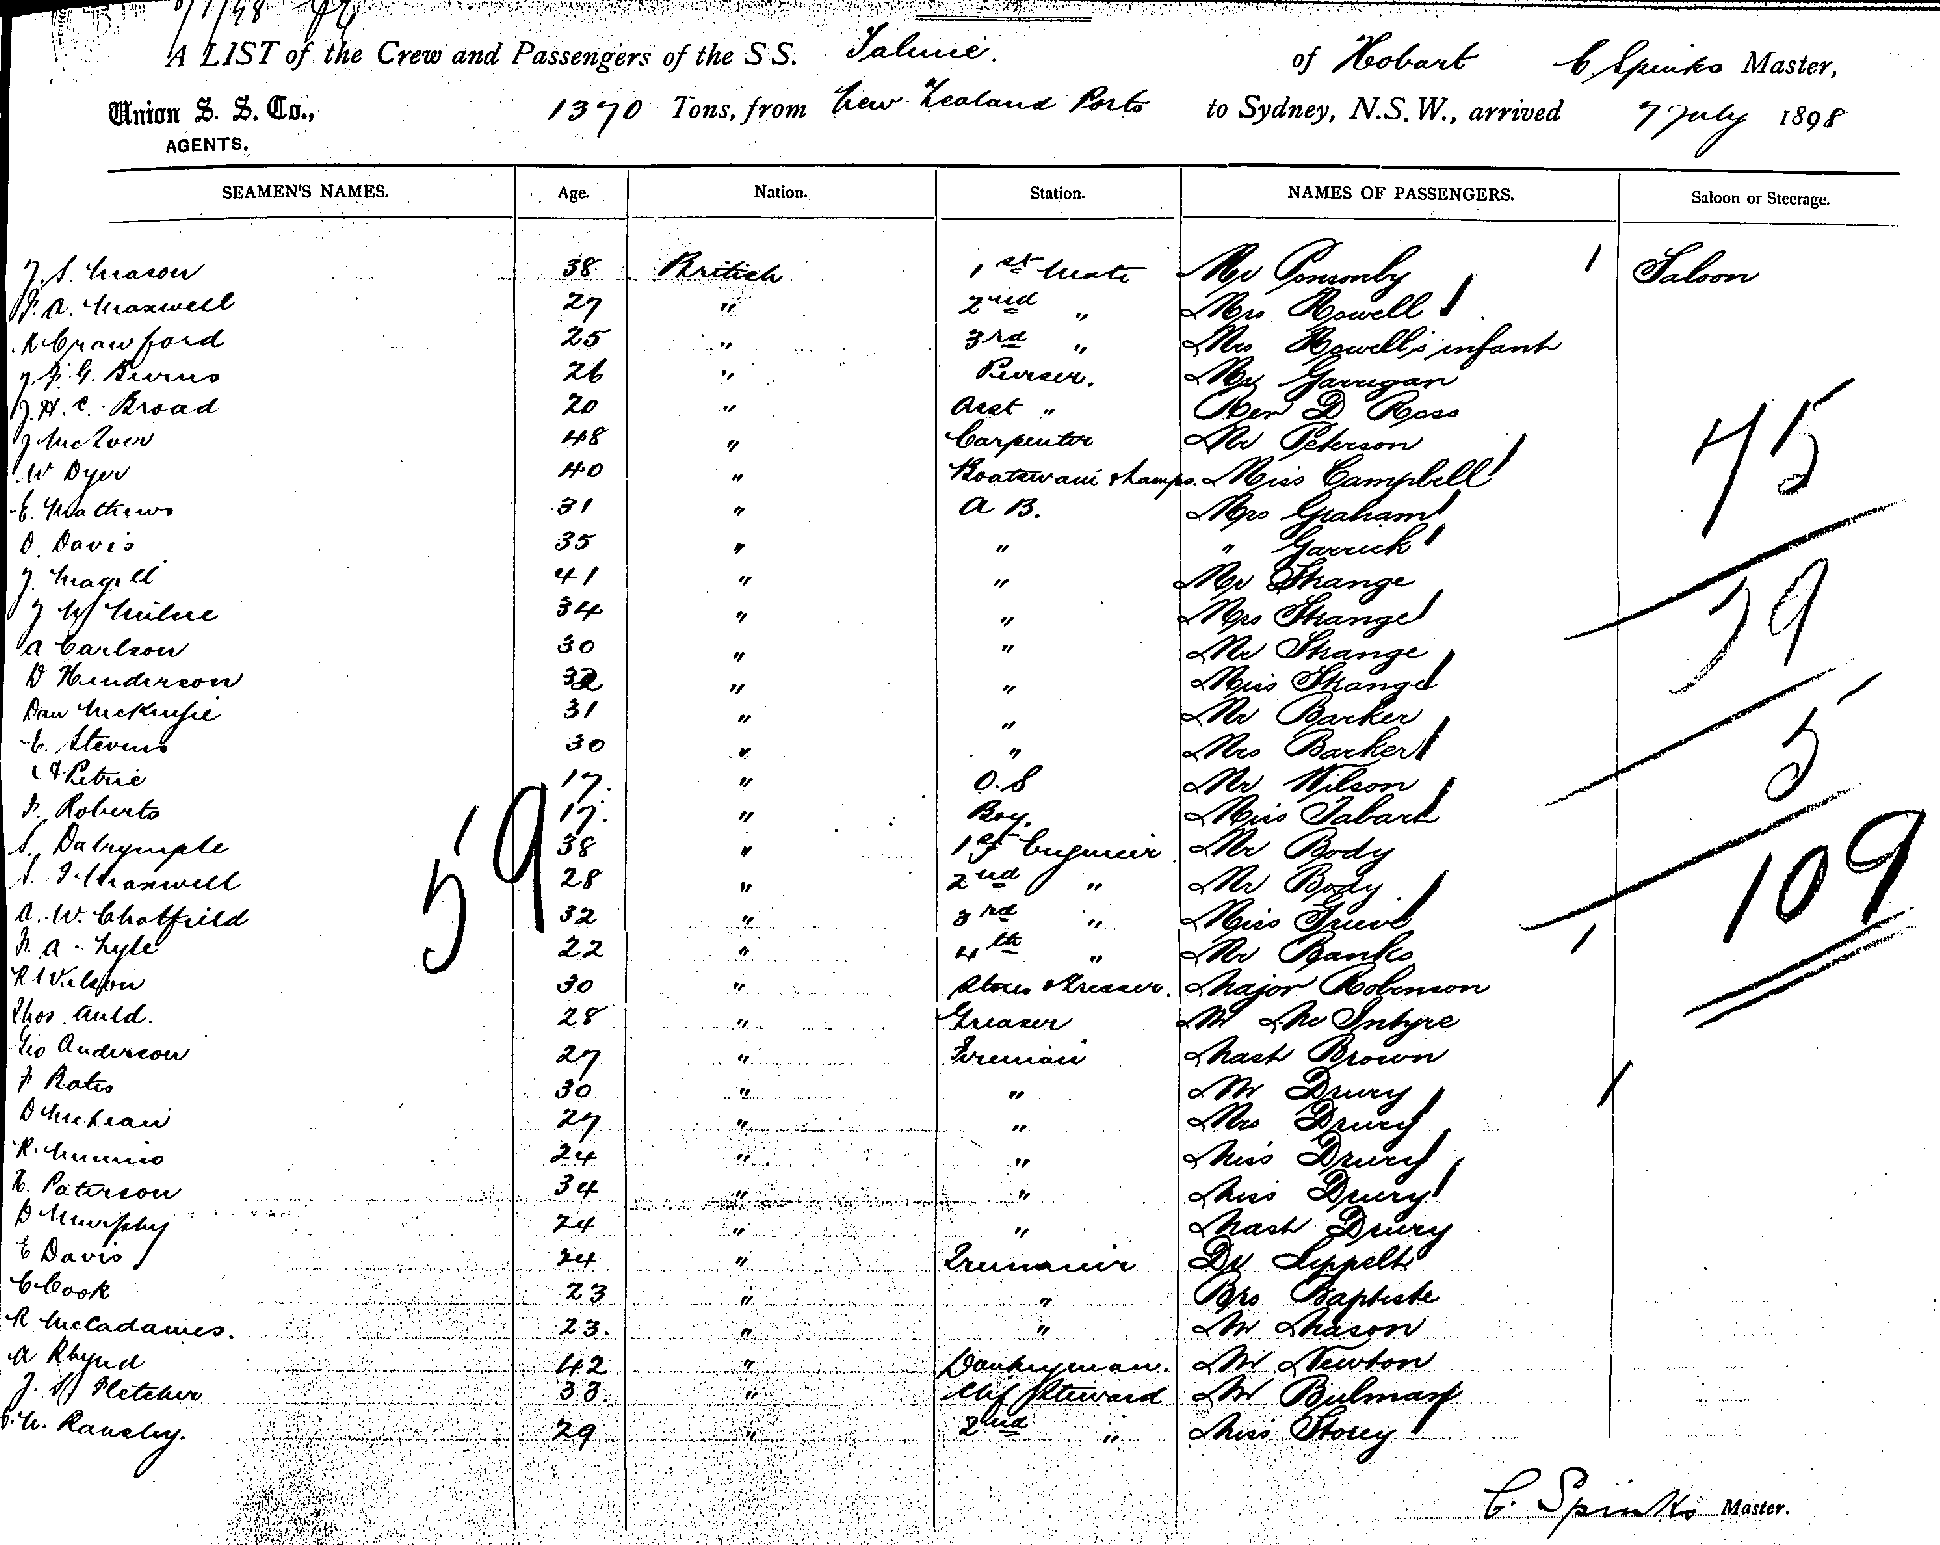 A LIST of the Crew and Passengers of the S S. Talune. of Hobart C Spinks Master,
Union S. S. Co., AGENTS. 1370 Tons, from New Zealand Ports to Sydney, N.S.W., arrived 7 July 1898
SEAMEN'S NAMES. Age. Nation. Station. NAMES OF PASSENGERS. Saloon or Steerage.
J. S. Mason 38 British 1st Mate Mr Ponsonby 1 Saloon
F. A. Maxwell 27 " 2nd " Mrs Howell
R Crawford 25 " 3rd " Mrs Howell's infant
26 " Purser. Mr Garrigan
J. H. C. Broad 20 " Asst " Rev D Ross
J McIver 48 " Carpenter Mr Peterson
W Dyer 40 " Boatswain & Lamps. Miss Campbell
E. Mathews 31 " A B. Mrs Graham
D. Davis 35 " " " Garrick
J. Magill 41 " " Mr Strange
J W Milne 34 " " Mrs Strange
A Carlson 30 " " Mr Strange
D Henderson 32 " " Miss Strange
Dan McKenzie 31 " " Mr Barker
E. Stevens 30 " " Mrs Barker
Petrie 17. " O.S Mr Wilson
F. Roberts 17. " Boy. Miss Tabart
S. Dalrymple 38 " 1st Engineer Mr Body
Maxwell 28 " 2nd " Mr Body
A. W. Chatfield 32 " 3rd " Miss
F. A. Lyle 22 " 4th " Mr Banks
R Wilson 30 " Stores & Greaser. Major Robinson
Thos. Auld. 28 " Greaser Mr McIntyre
Geo Anderson 27 " Fireman Mast Brown
F Bates 30 " " Mr Drury
D McLean 27 " " Mrs Drury
R. 24 " " Miss Drury
H. Paterson 34 " " Miss Drury
D Murphy 24 " " Mast Drury
E Davis 24 " Trimmer Dr Seppelt
C Cook 23 " " Bro Baptiste
R McCadames. 23. " " Mr Mason
A Rhynd 42 " Donkeyman. Mr Newton
J. Fletcher 33. " Chf Steward Mr Bulman
Ransley. 29 " 2nd " Miss Storey
59
45
5
109
C. Spinks Master.